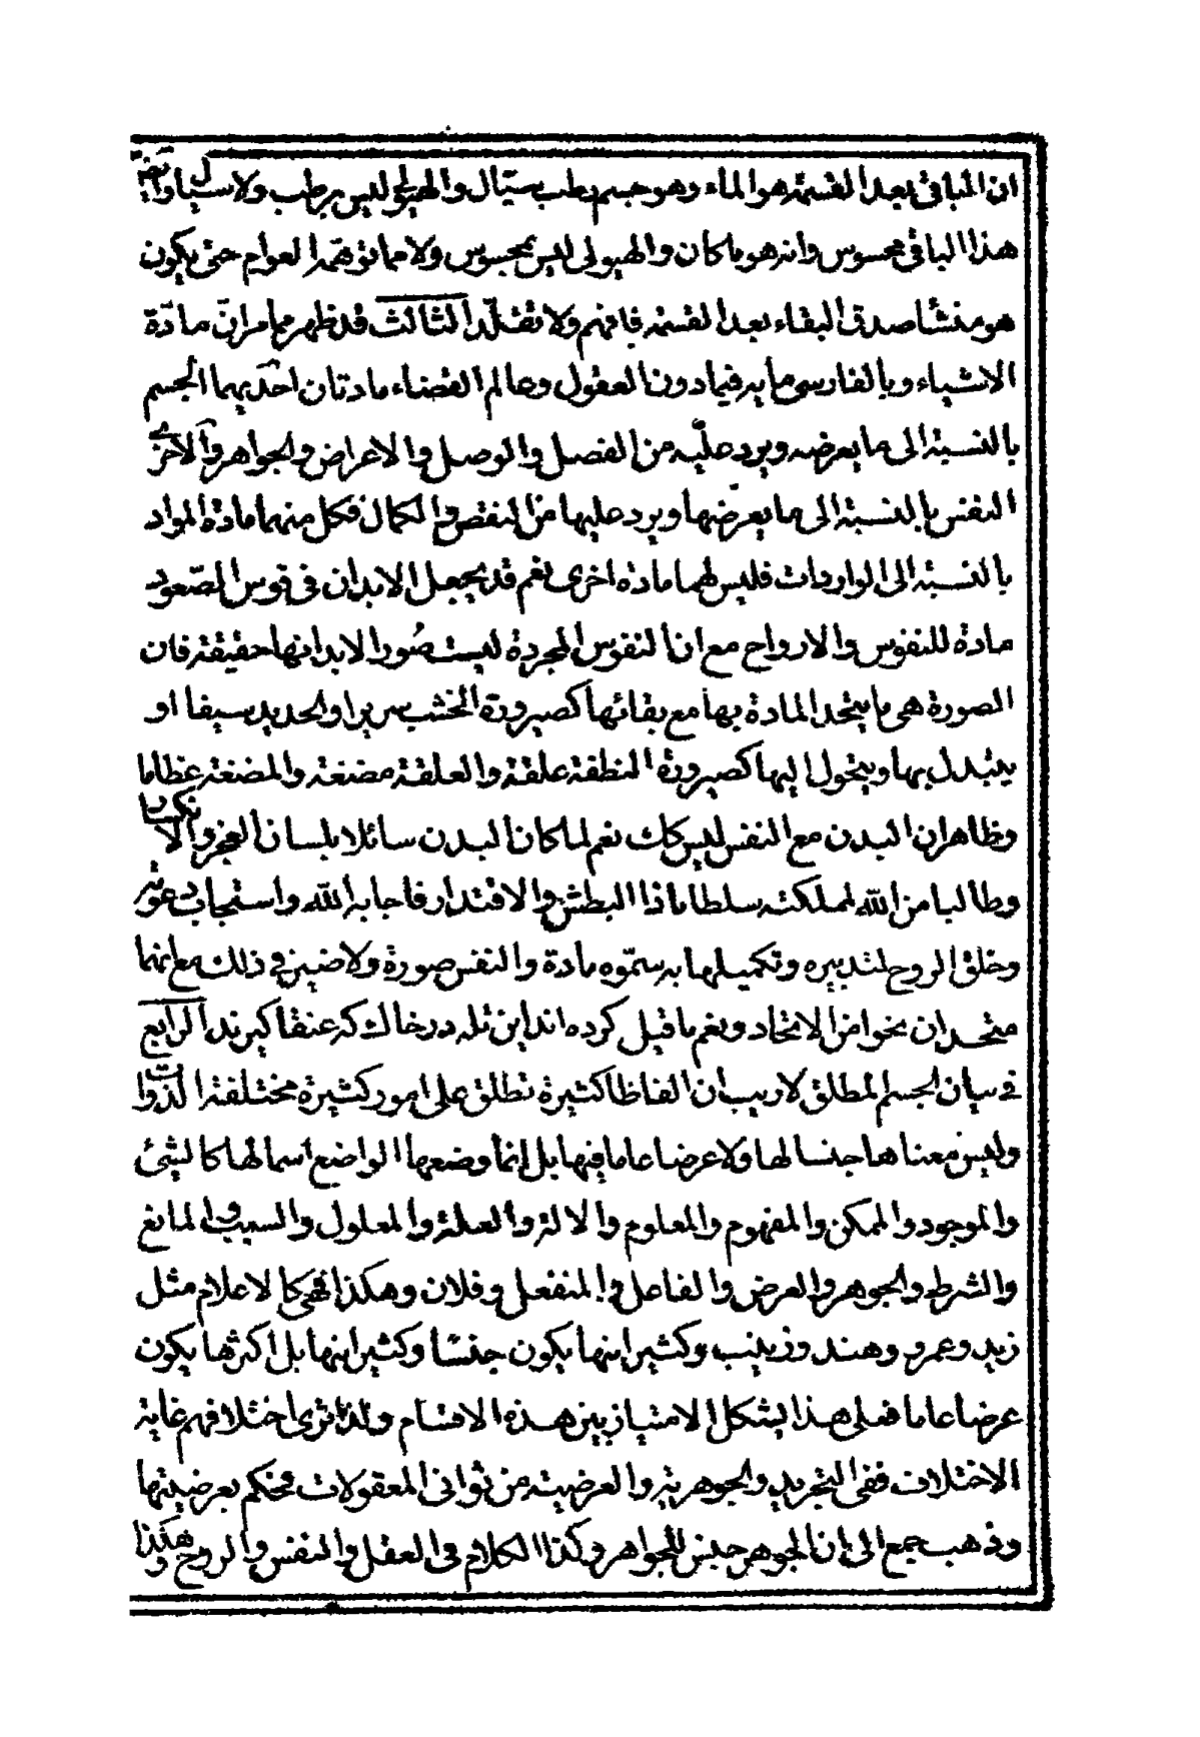 ان الباقى بعد القسمة هو الماء وهو جسم رطب سيّال والهيولى ليس برطب ولا سيال وايضا
هذا الباقى محسوس وانه هو ما كان والهيولى ليس بمحسوس ولا مما توهّمه العوام حتى يكون
هو منشأ صدق البقاء بعد القسمة فافهم ولا تقلّد الثالث قد ظهر مما مر انّ مادّة
الاشياء وبالفارسى مايه فيما دون العقول وعالم القضاء مادتان احديهما الجسم
بالنسبة الى ما يعرضه ويرد عليه من الفصل والوصل والاعراض والجواهر والاخرى
النفس بالنسبة الى ما يعرضها ويرد عليها من النقص والكمال فكل منهما مادة المواد
بالنسبة الى الواردات فليس لهما مادة اخرى نعم قد يجعل الابدان فى قوس الصّعود
مادة للنفوس والارواح مع ان النفوس المجردة ليست صُورا لابدانها حقيقة فان
الصورة هى ما يتحد المادة بها مع بقائها كصيرورة الخشب سريرا والحديد سيفا او
يتبدل بها ويتحول اليها كصيرورة النطفة علقة والعلقة مضغة والمضغة عظاما
وظاهر ان البدن مع النفس ليس كك نعم لما كان البدن سائلا بلسان العجز والانكسار
وطالبا من الله لمملكته سلطانا ذا البطش والاقتدار فاجابه الله واستجاب دعوته
وخلق الروح لتدبيره وتكميلها به سمّوه مادة والنفس صورة ولا ضير فى ذلك مع انهما
متحدان بنحو من الاتحاد ونعم ما قيل كرده اند اين تله در خاك كه عنقا كيرند الرابع
فى بيان الجسم المطلق لا ريب ان الفاظا كثيرة تطلق على امور كثيرة مختلفة الذوات
وليس معناها جنسا لها ولا عرضا عاما فيها بل انما وضعها الواضع اسما لها كالشئ
والموجود والممكن والمفهوم والمعلوم والالة والعلة والمعلول والسبب والمانع
والشرط والجوهر والعرض والفاعل والمنفعل وفلان وهكذا فهى كالاعلام مثل
زيد وعمرو وهند وزينب وكثير منها يكون جنسا وكثير منها بل اكثرها يكون
عرضا عاما فعلى هذا يشكل الامتياز بين هذه الاقسام ولذا ترى اختلافهم غاية
الاختلاف ففى التجريد والجوهرية والعرضية من ثوانى المعقولات فحكم بعرضيتها
وذهب جمع الى ان الجوهر جنس للجواهر وكذا الكلام فى العقل والنفس والروح وهكذا